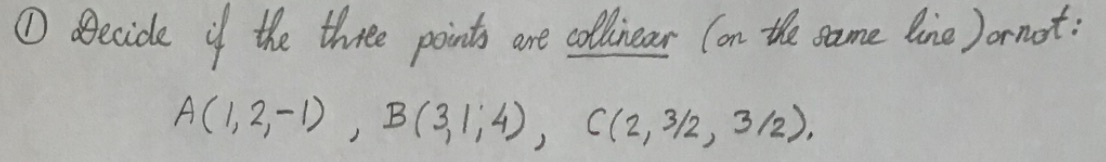 ① Decide if the three points are collinear (on the same line) or not:
A(1, 2, -1), B(3, 1, 4), C(2, 3/2, 3/2).